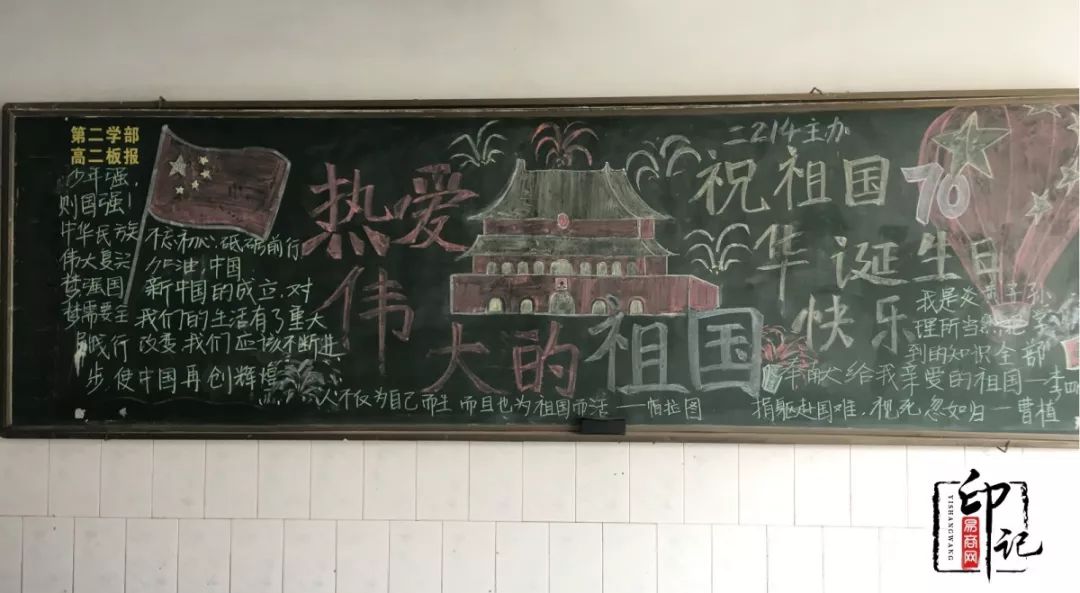 第二学部
高二板报
少年强，
则国强！
中华民族
伟大复兴
梦强国
梦需要主
践行
不忘初心、砥砺前行
加油，中国
新中国的成立，对
我们的生活有了重大
改变，我们应该不断进
步，使中国再创辉煌
热爱
伟
大的祖国
人不仅为自己而生，而且也为祖国而活——帕拉图
二214主办
祝祖国70
华诞生日
快乐
我是炎黄子孙
理所当然把学
到的知识全部
奉献给我亲爱的祖国—李四
捐躯赴国难，视死忽如归—曹植
印记
易商网
YISHANGWANG